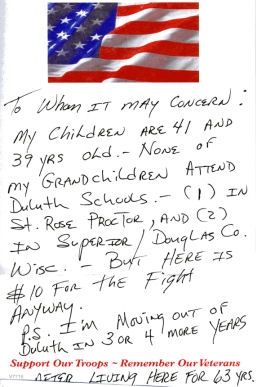 To Whom IT may Concern:
My Children are 41 and
39 yrs old. - None of
my Grandchildren attend
Duluth Schools. - (1) in
St. Rose Proctor, and (2)
in Superior/Douglas Co.
Wisc. - But Here is
$10 For the Fight
Anyway.
P.S. I'm Moving out of
Duluth in 3 or 4 more years
Support Our Troops ~ Remember Our Veterans
after living here for 63 yrs.